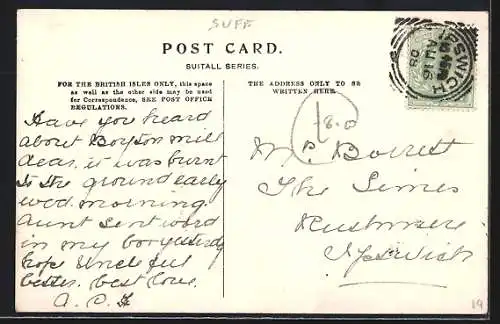 SUFF
POST CARD.
SUITALL SERIES.
FOR THE BRITISH ISLES ONLY, this space
as well as the other side may be used
for Correspondence, SEE POST OFFICE
REGULATIONS.
THE ADDRESS ONLY TO BE
WRITTEN HERE.
IPSWICH
AU 16
08
Have you heard
about Boyton mill
dear. it was burnt
to the ground early
wed. morning.
Aunt sent word
in my box yesterdy
hope Uncle
better. best love.
Mr. Barrett
The Limes
Rushmere
Ipswich
19